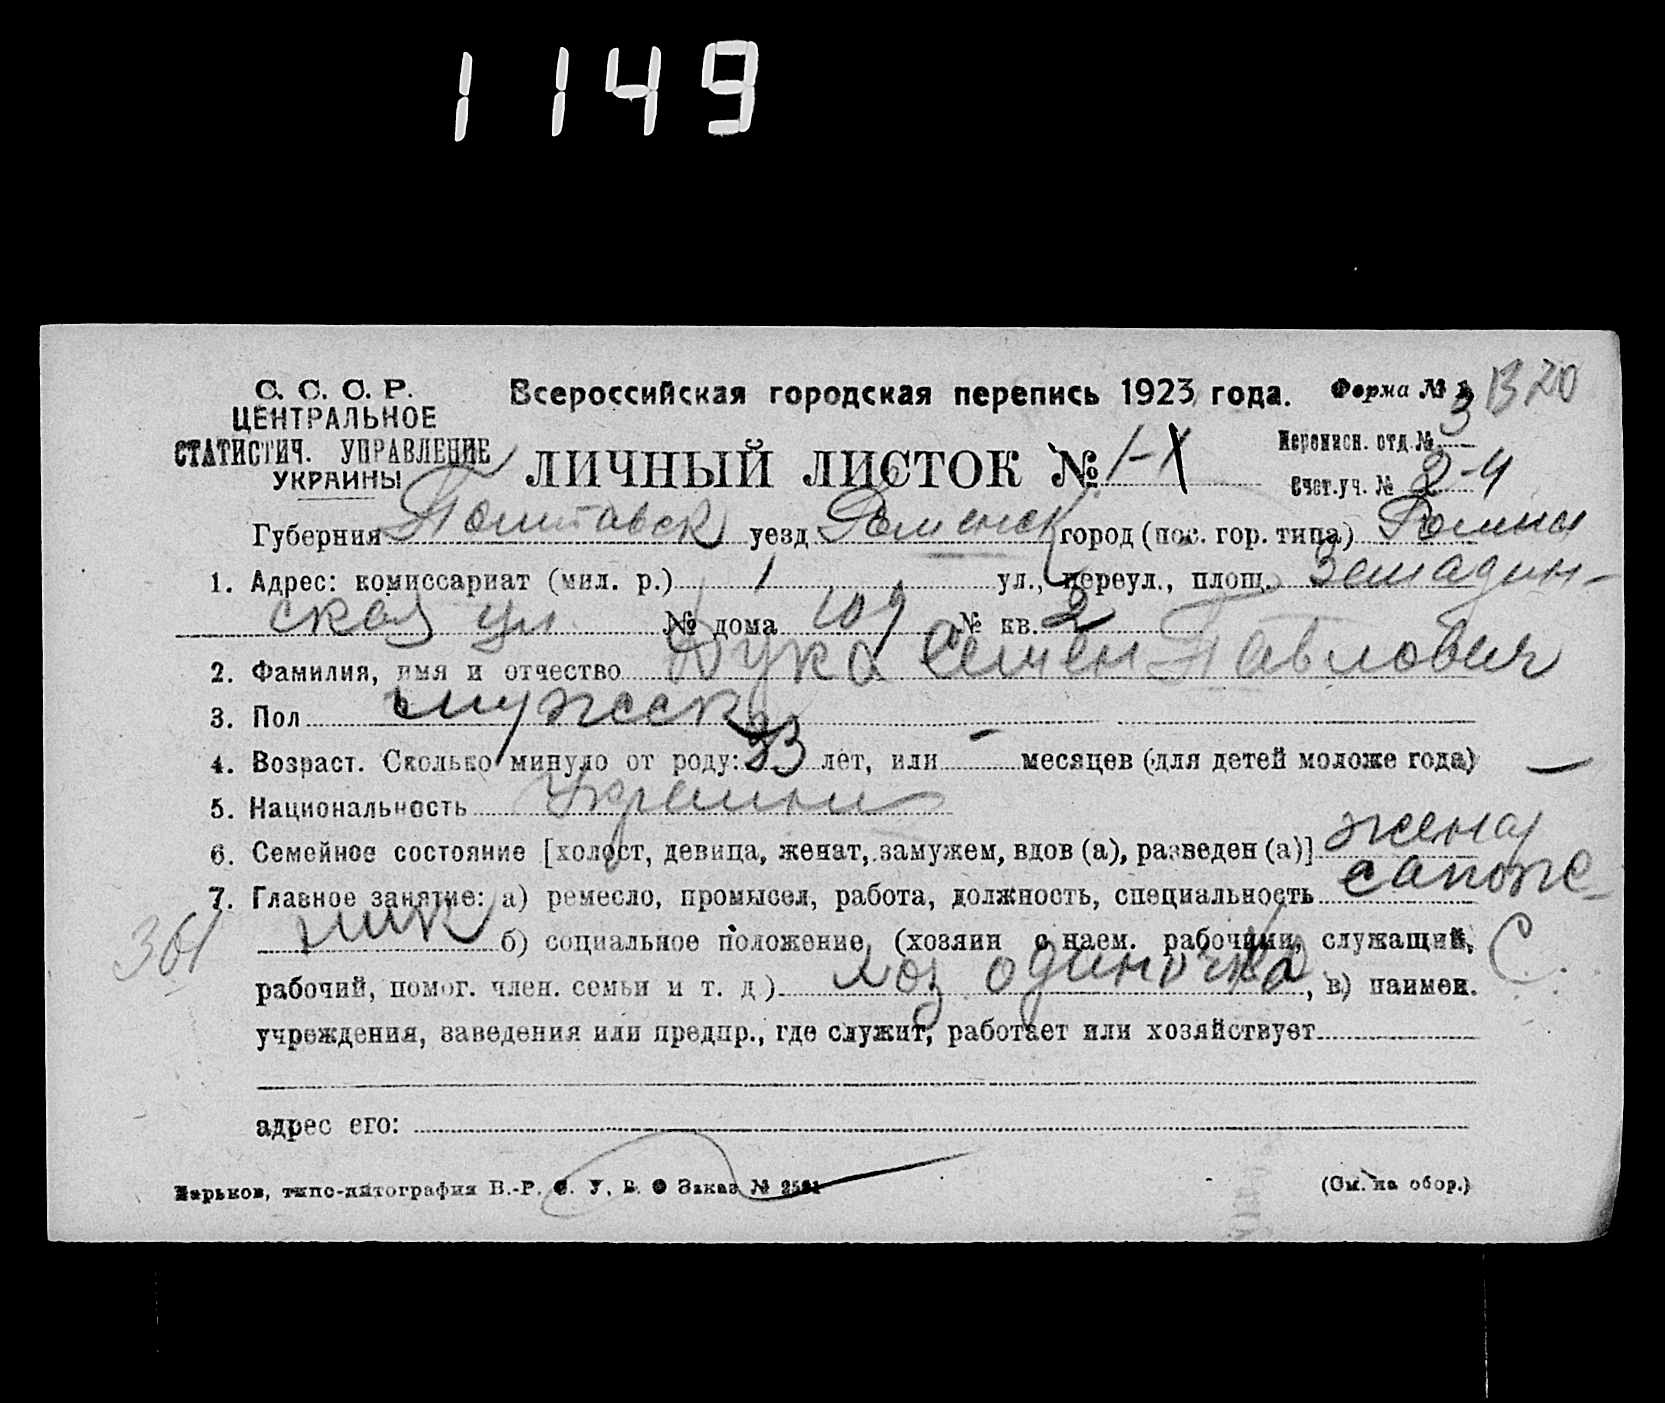 1149
С. С. С. Р.
ЦЕНТРАЛЬНОЕ
СТАТИСТИЧ. УПРАВЛЕНИЕ
УКРАИНЫ
Всероссийская городская перепись 1923 года.
Форма № 3 В 20
ЛИЧНЫЙ ЛИСТОК № 1-
Переписн. отд. №
Счет. уч. № 2-4
Губерния Полтавск уезд Роменск город (пос. гор. типа) Ромны
1. Адрес: комиссариат (мил. р.) 1 ул., переул., площ.
ская ул № дома 109 № кв. 2
2. Фамилия, имя и отчество Дука Семен Павлович
3. Пол мужеск
4. Возраст. Сколько минуло от роду: 33 лет, или - месяцев (для детей моложе года) —
5. Национальность
6. Семейное состояние [холост, девица, женат, замужем, вдов (а), разведен (а)] жена
7. Главное занятие: а) ремесло, промысел, работа, должность, специальность сапож-
361 ник б) социальное положение, (хозяин с наем. рабочими, служащий, С
рабочий, помог. член. семьи и т. д.) хоз. одиночка, в) наимен.
учреждения, заведения или предпр., где служит, работает или хозяйствует
адрес его:
Харьков, типо-литография В.-Р. С. У. В. Заказ №
(См. на обор.)